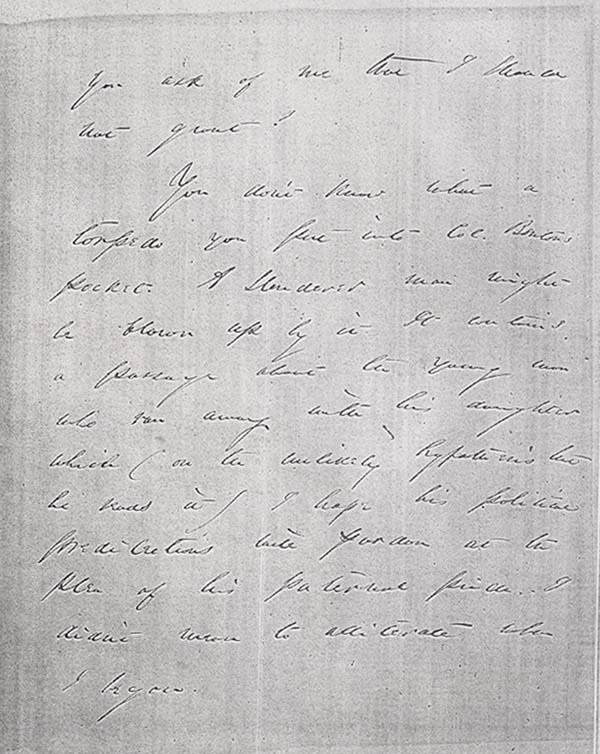 You ask of me that I should
not grant?
You don't know what a
torpedo you put into Col. Benton's
pocket. A slenderer man might
be blown up by it. It contains
a passage about the young man
who ran away with his daughter
which (on the unlikely hypothesis that
he reads it) I hope his political
predilections will pardon at the
plea of his paternal pride. I
didn't mean to alliterate when
I began.